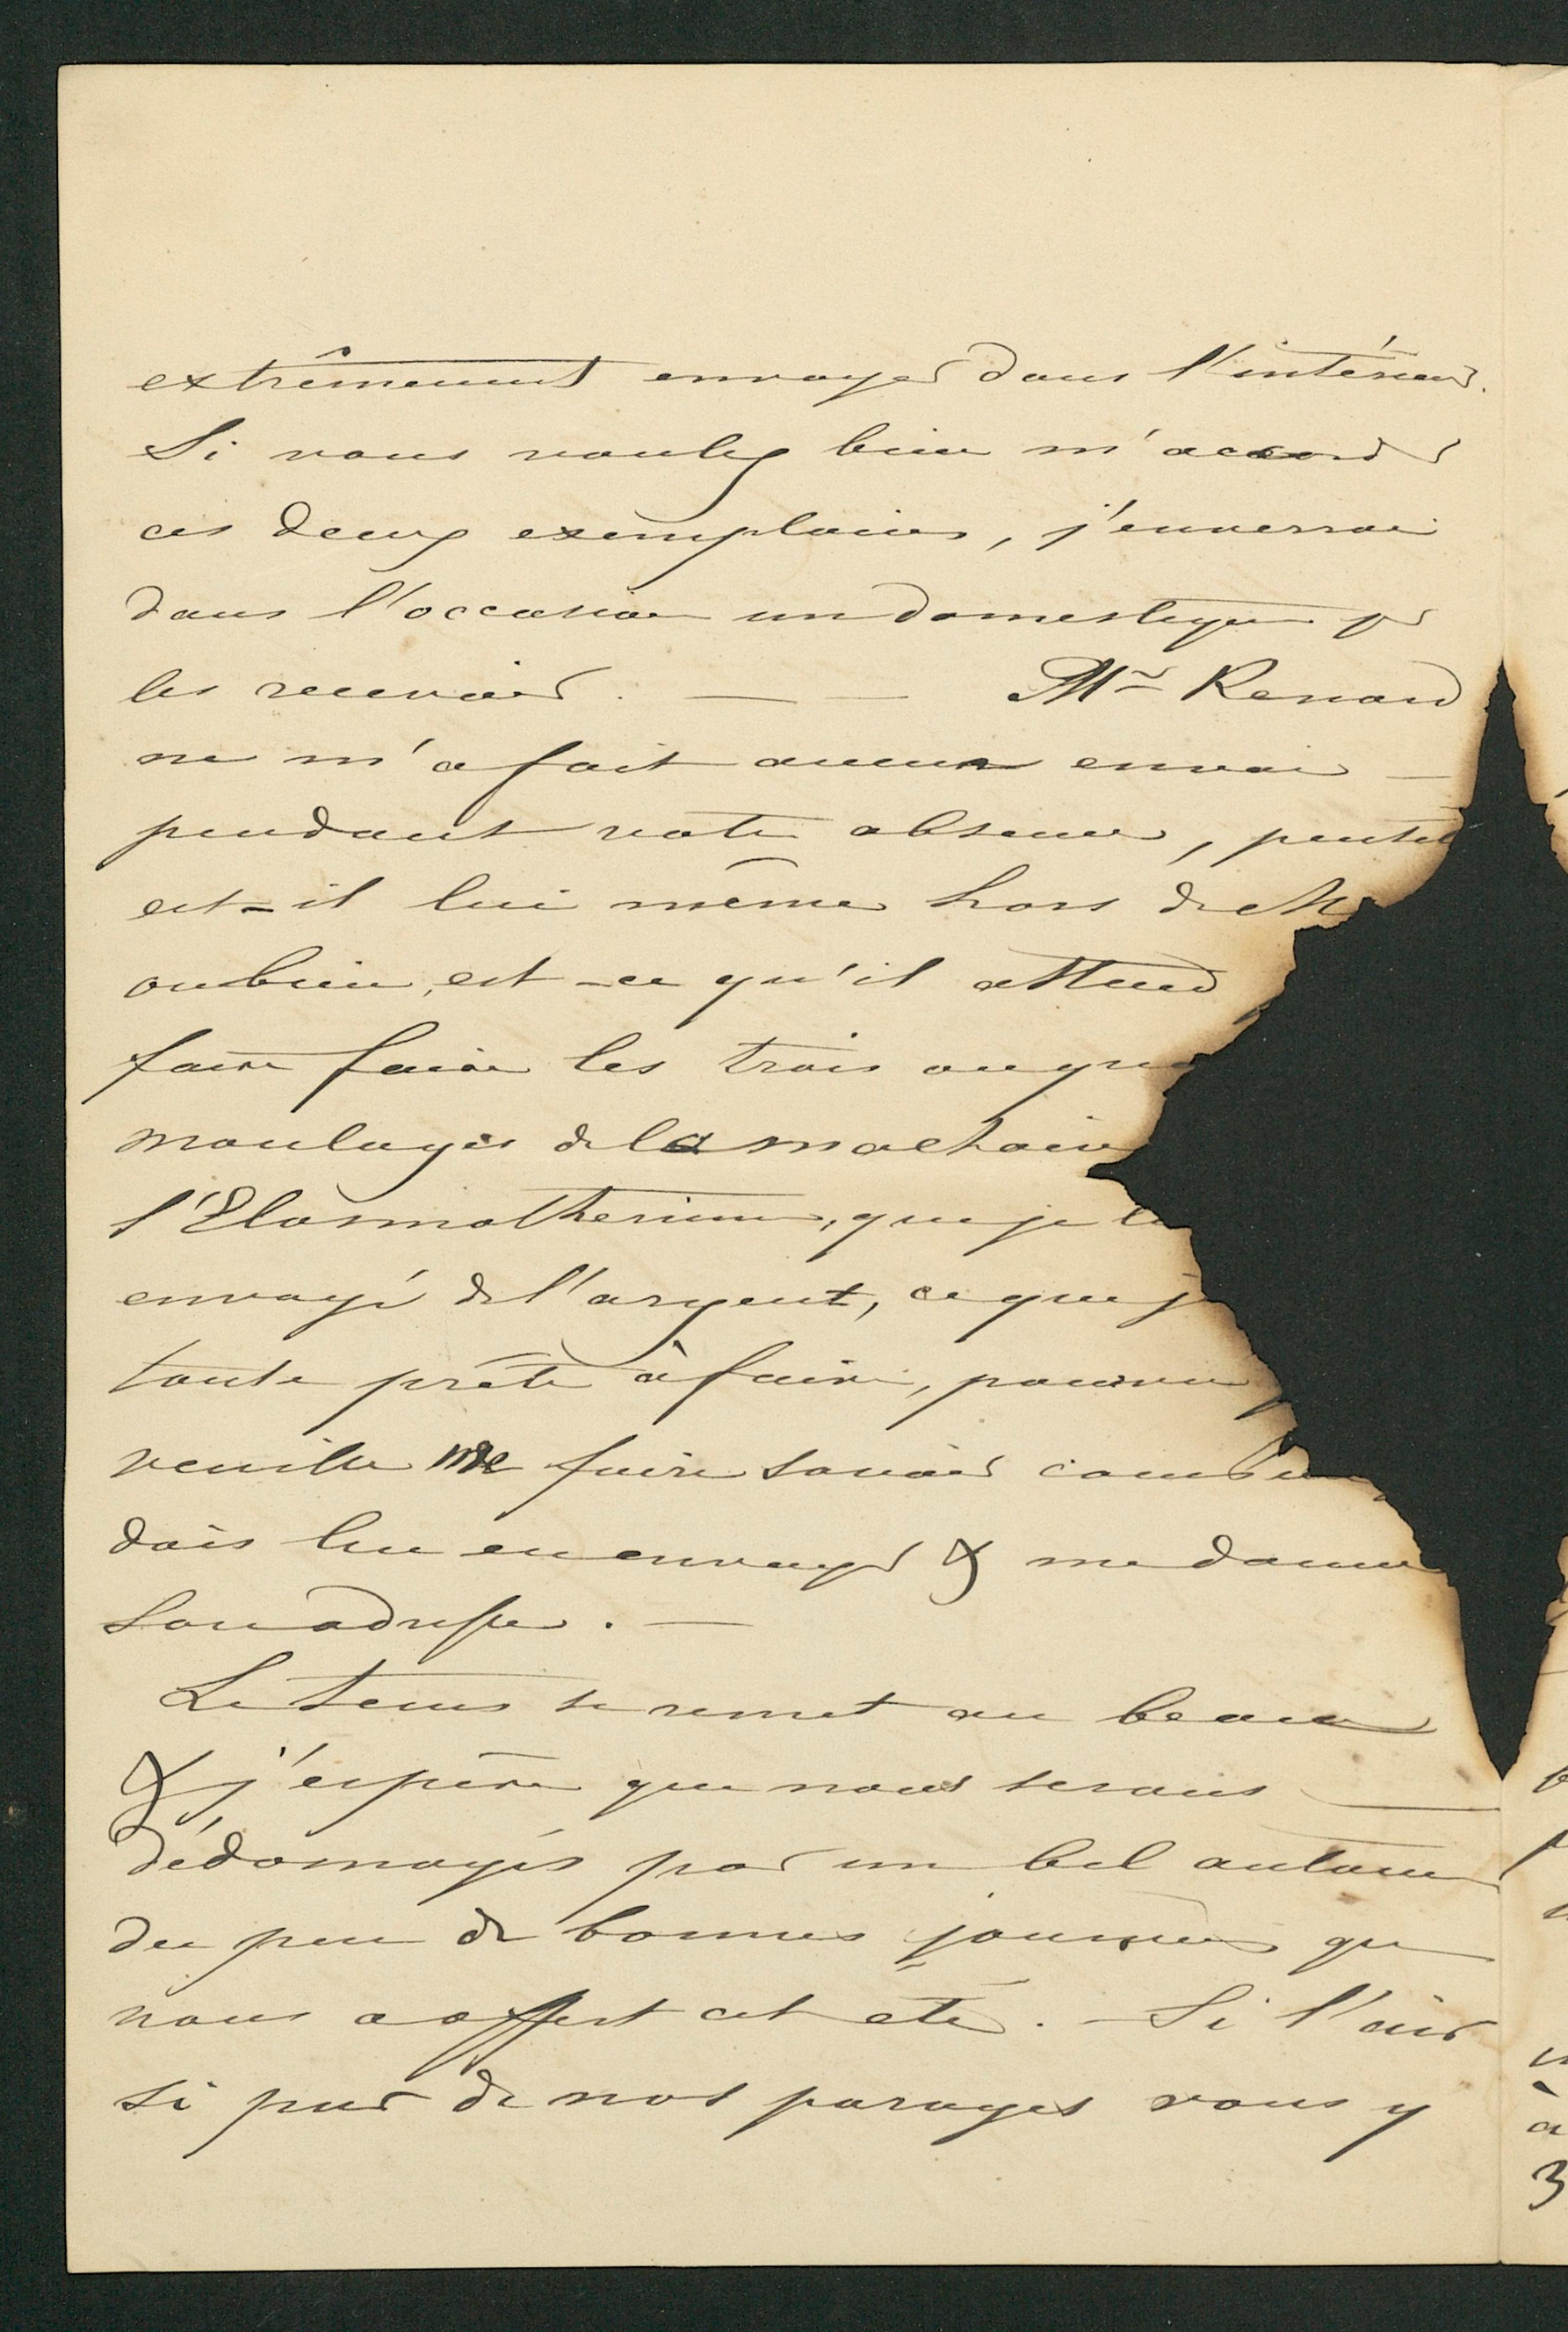 extrêmement envoyer dans l'intérieur.
Si vous voulez bien m'accorder
ces deux exemplaires, j'enverrai
dans l'occasion un domestique pr
les recevoir. — — Mr Renard
ne m'a fait aucun envoi —
pendant votre absence, peutêt
est-il lui même hors de M
oubien, est-ce qu'il attend
faire faire les trois ou qu
moulages de la machoire
l'Elasmotherium, que je l
envoyé de l'argent, ce que j
toute prête à faire, pourvu
veuille me faire savoir combien
dois lui en envoyer & me donner
son adresse. —
Le tems se remet au beau
& j'espère que nous serons —
dédomagés par un bel automne
du peu de bonnes journées que
nous a offert cet été. — Si l'air
si pur de nos parages vous y
à
3